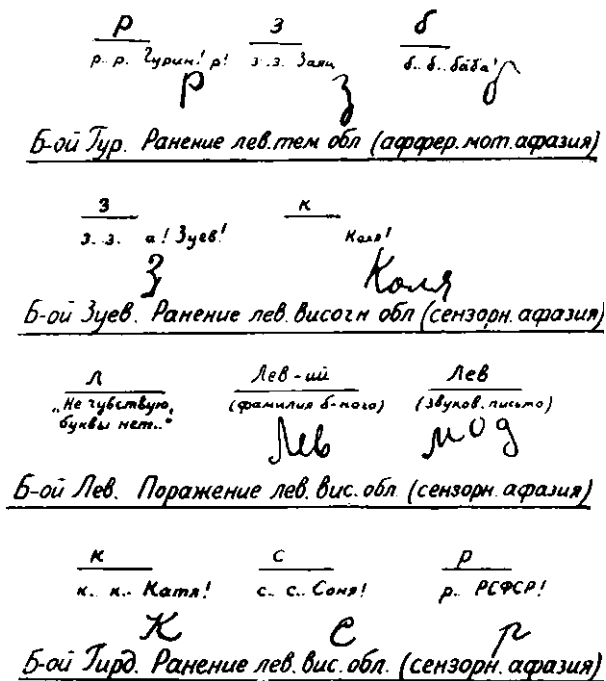 р з б
р. р. Гурин! р! з. з. Заяц б.. б.. баба!
р з б
Б-ой Гур. Ранение лев. тем обл (аффер. мот. афазия)
з к
з. з. а! Зуев! Коля!
З Коля
Б-ой Зуев. Ранение лев. височн обл (сензорн. афазия)
л Лев-ий Лев
„Не чувствую, (фамилия б-ного) (звуков. письмо)
буквы нет.."
Лев мод
Б-ой Лев. Поражение лев. вис. обл. (сензорн. афазия)
к с р
к.. к.. Катя! с.. с.. Соня! р.. РСФСР!
К С р
Б-ой Гирд. Ранение лев. вис. обл. (сензорн. афазия)